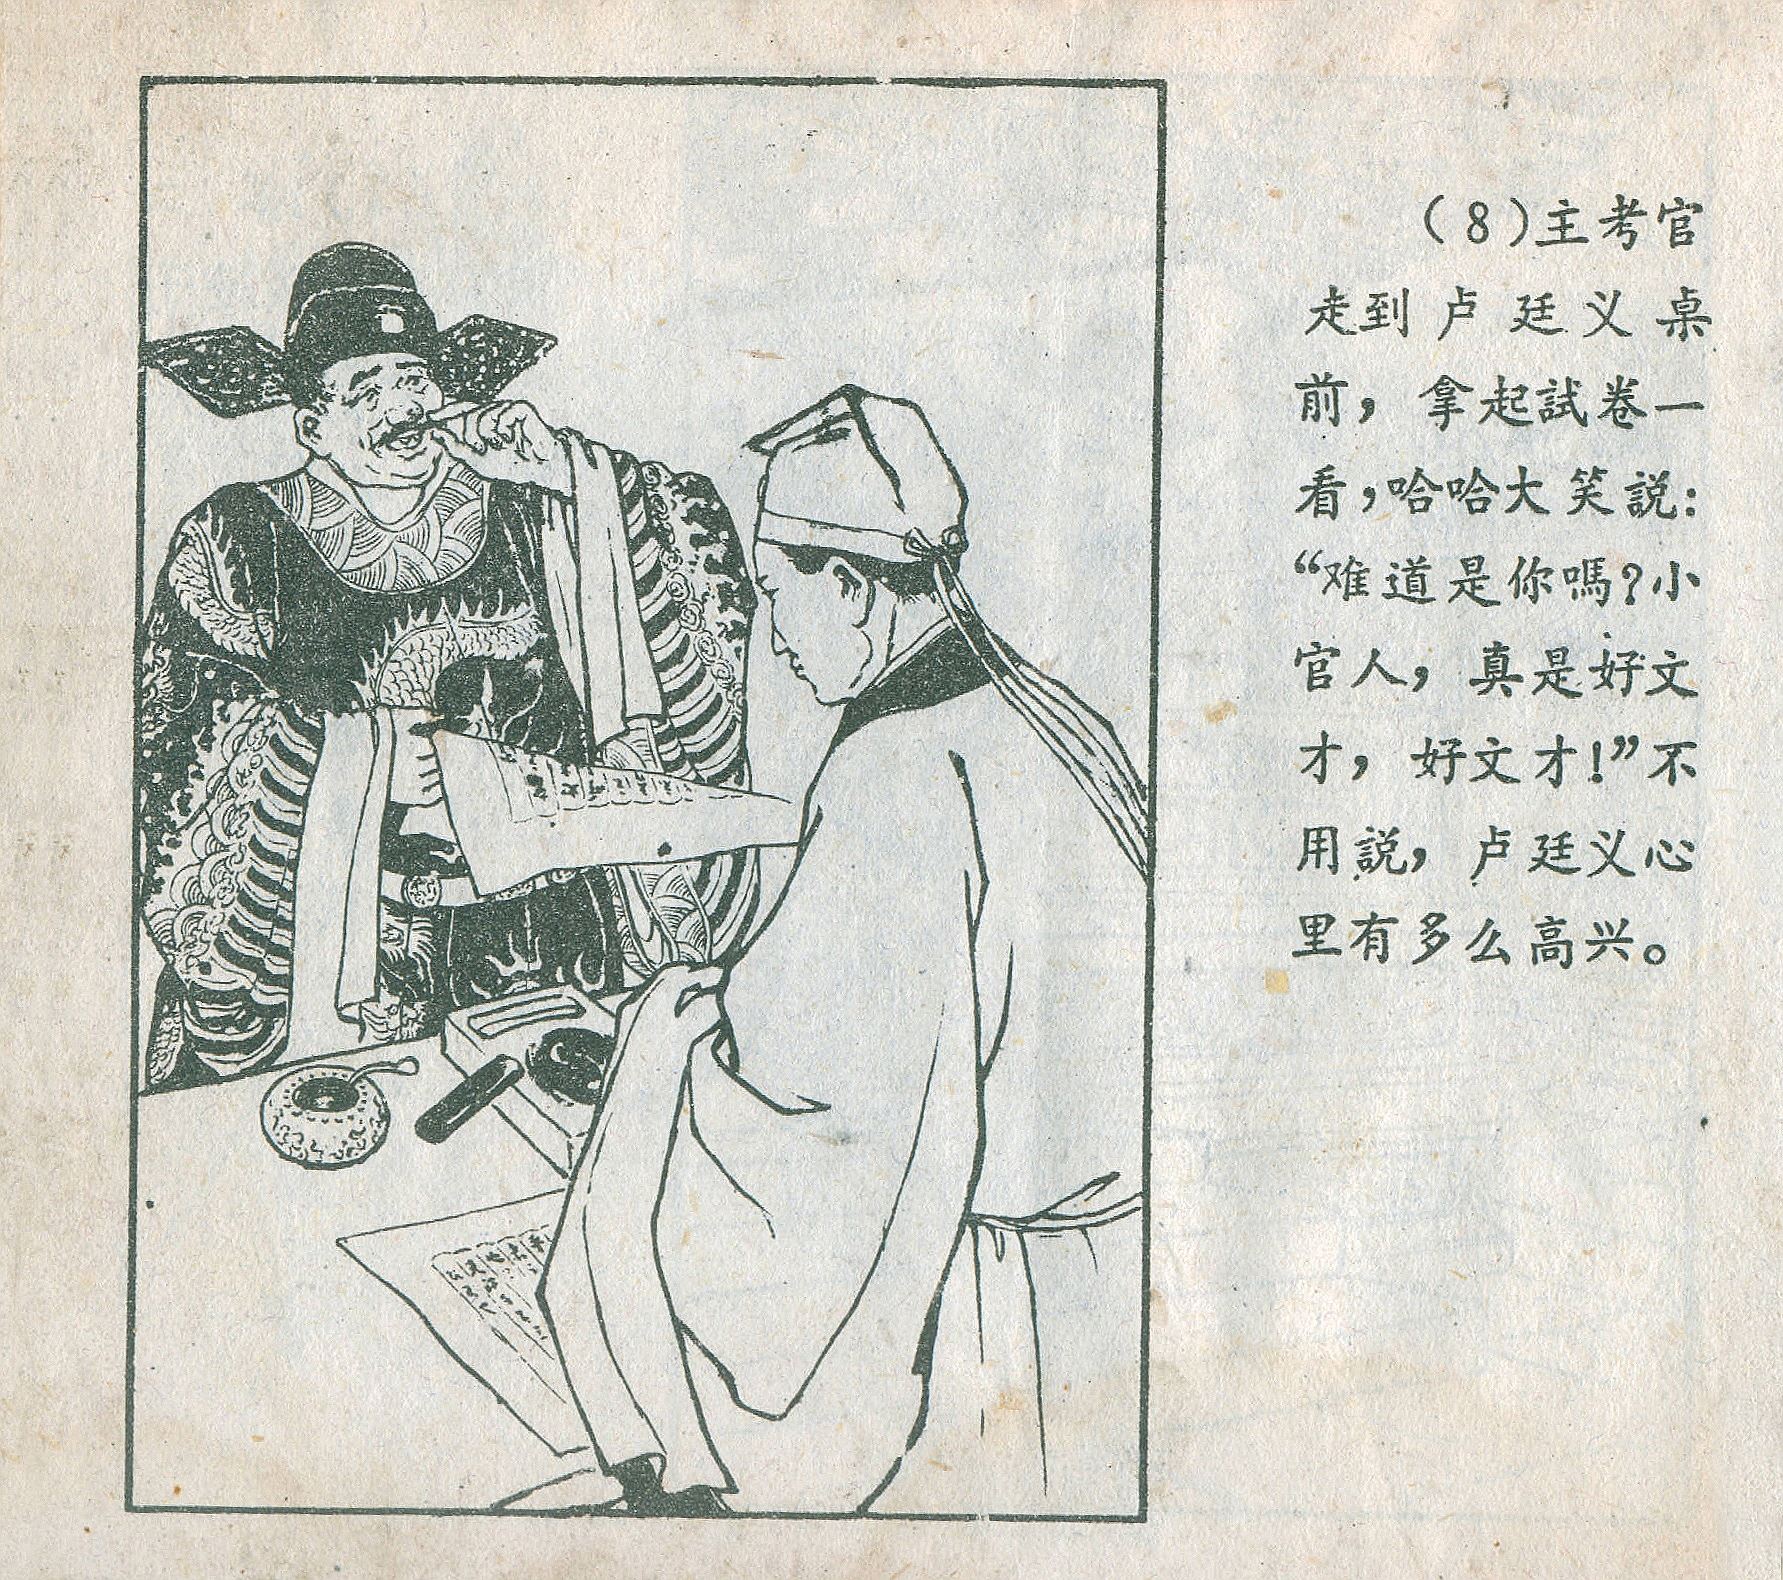 （8）主考官
走到卢廷义桌
前，拿起試卷一
看，哈哈大笑説：
“难道是你嗎？小
官人，真是好文
才，好文才！”不
用説，卢廷义心
里有多么高兴。